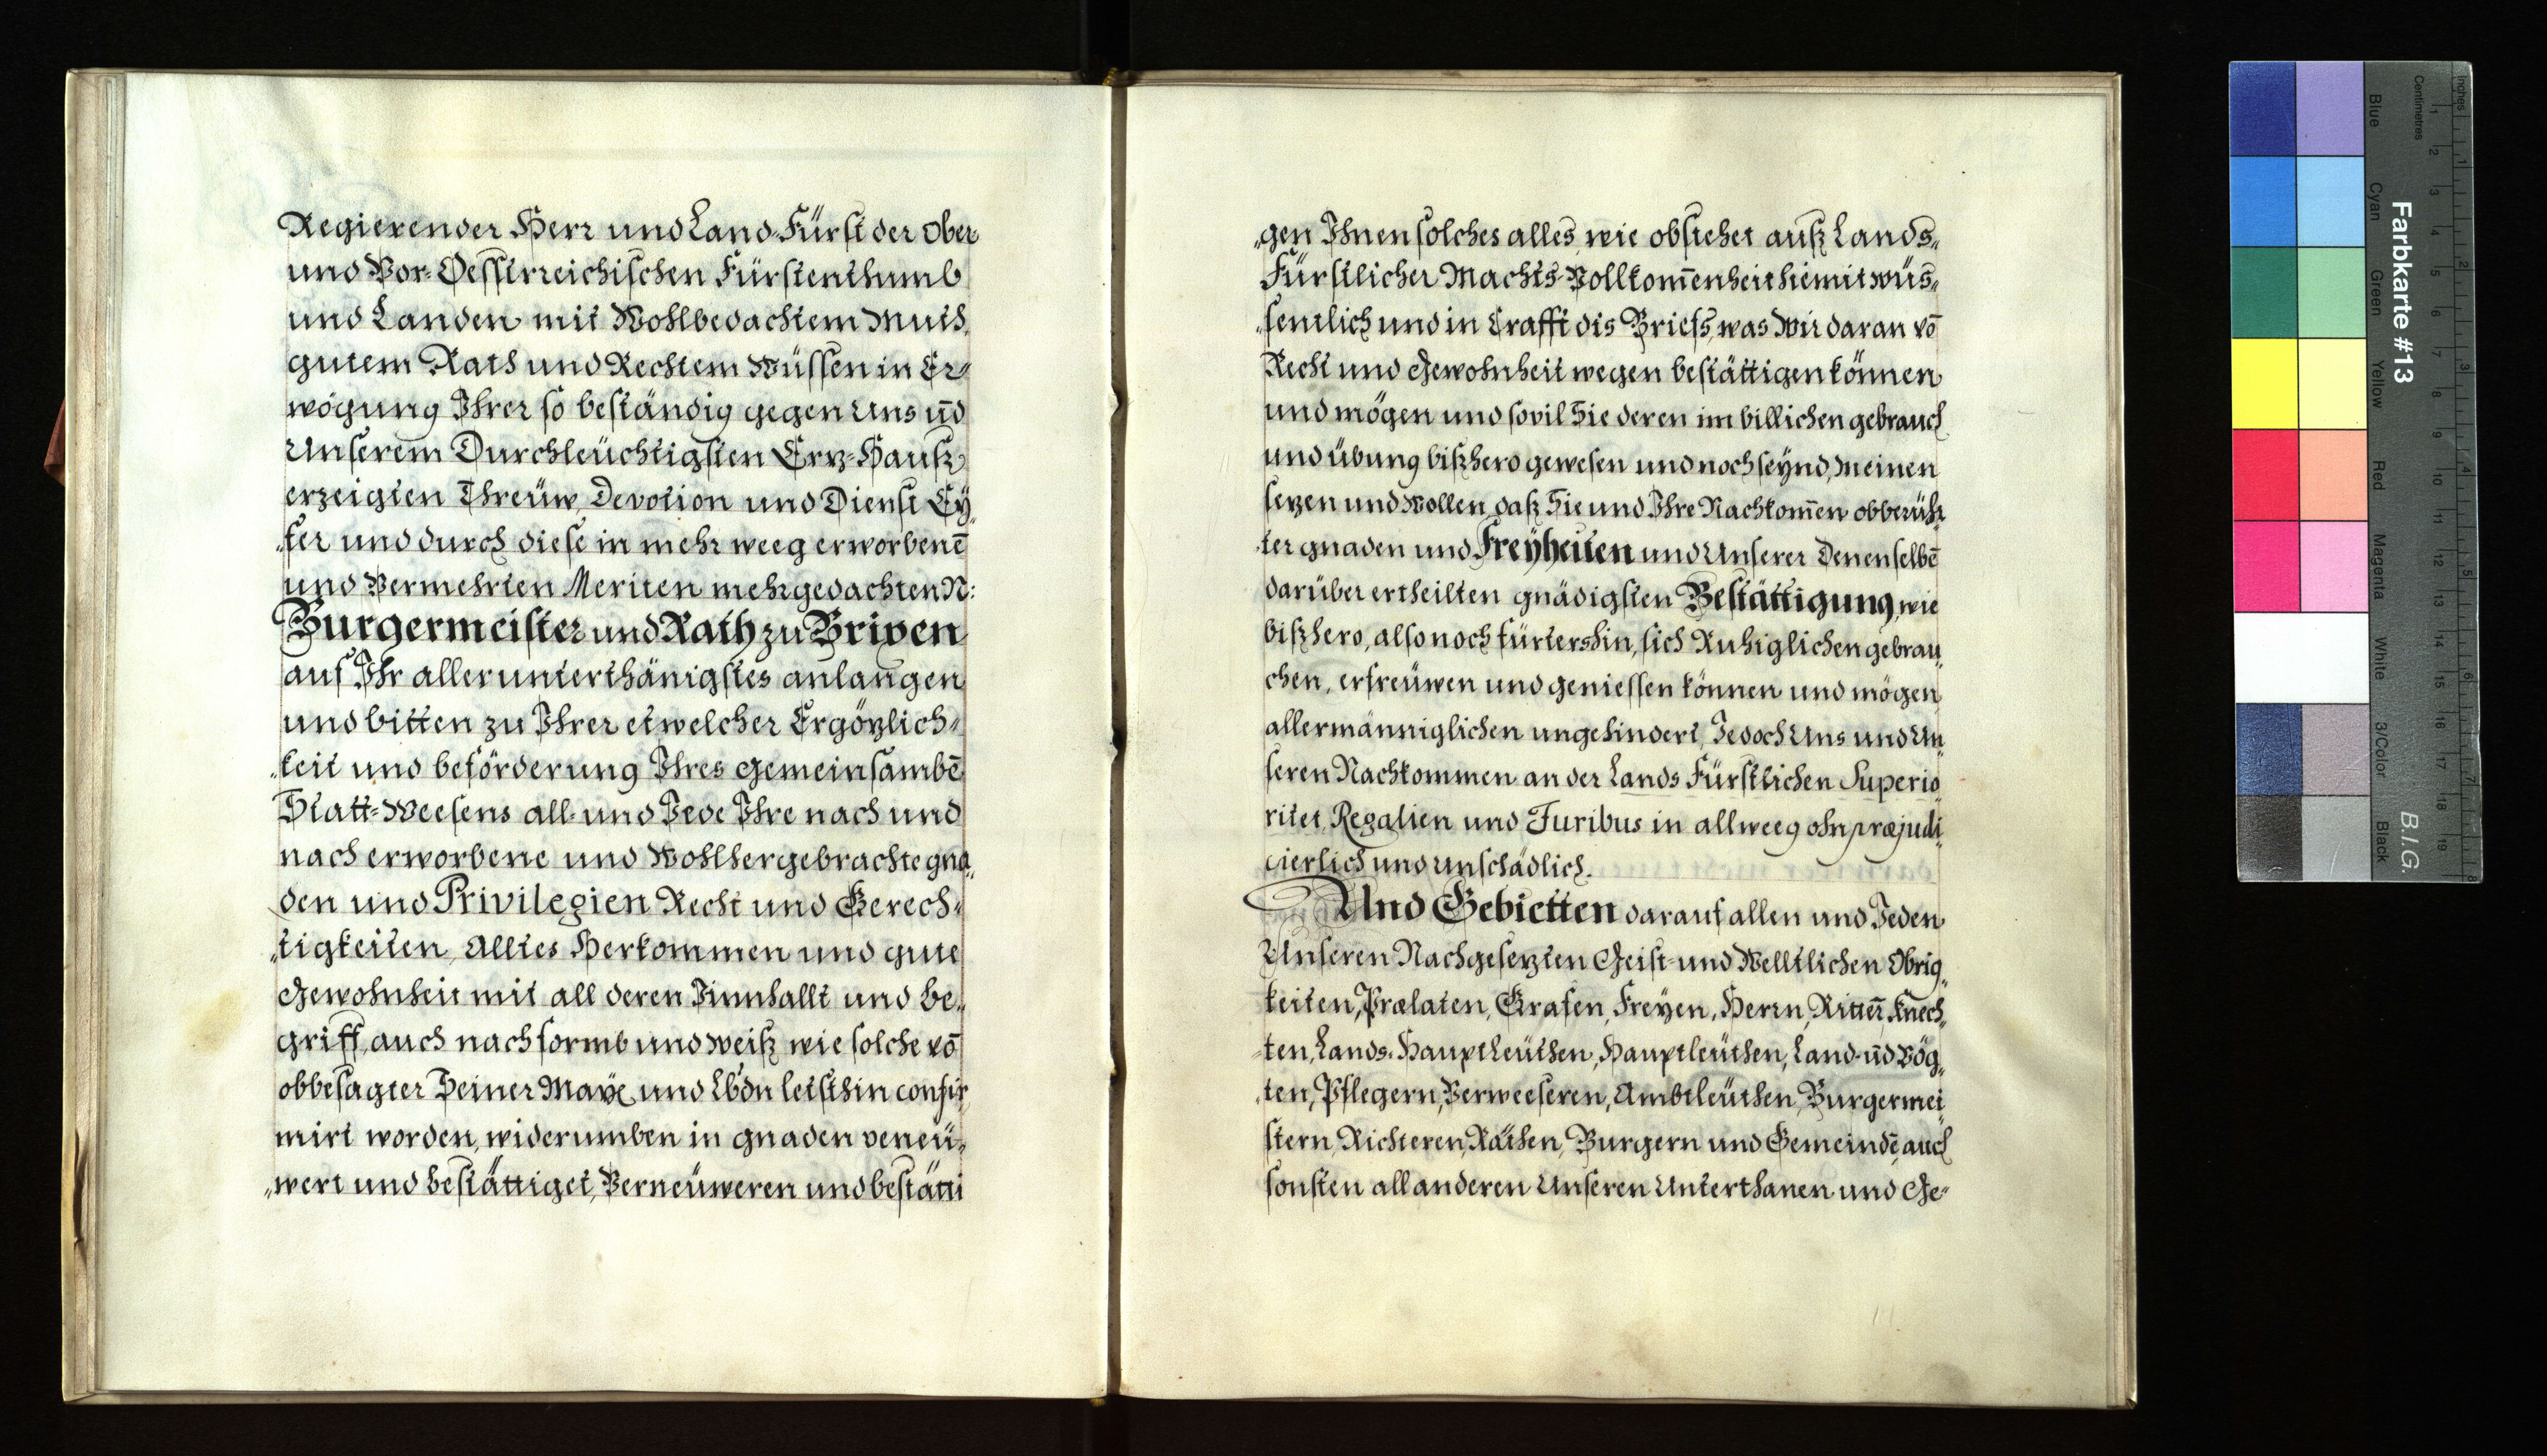 Regierender Herr und Land-Fürst der Ober
und Vor-Oessterreichischen Fürstenthumb
und Landen mit Wohlbedachtem Muth,
gutem Rath und Rechtem Wüssen in Er-
wögung Ihrer so beständig gegen Uns uñd
Unserem Durchleüchtigsten Erz-Hauß
erzeigten Threüw, Devotion und Dienst Ey
„fer und durch diese in mehr weeg erworbenē
und Vermehrten Meriten mehrgedachten N:
Burgermeister und Rath zu Brixen
auf Ihr allerunterthänigstes anlangen
und bitten zu Ihrer etwelcher Ergözlich-
„keit und beförderung Ihres gemeinsambē
Statt-Weesens all- und Jede Ihre nach und
nach erworbene und Wohlhergebrachte gna„
den und Privilegien Recht und Gerech-
„tigkeiten, Alltes Herkommen und gute
Gewohnheit mit all deren Innhallt und be„
griff, auch nach formb und weiß wie solche võ
obbesagter Seiner May: und Lbdn letsthin confir
mirt worden, widerumben in gnaden verneü„
„wert und bestättiget, Verneüweren und bestätti
„gen Ihnen solches alles, wie obstehet auß Lands„
Fürstlicher Machts-Vollkom̄enheit hiemit wüs„
„sentlich und in Crafft dis Briefs, was Wir daran võ
Recht und Gewohnheit wegen bestättigen können
und mögen und sovil Sie deren im billichen gebrauch
und übung bißhero gewesen und noch seynd, meinen
sezen und Wollen, daß Sie und Ihre Nachkom̄en obberühr
„ter gnaden und Freyheiten und Unserer Denenselbē
darüber ertheilten gnädigsten Bestättigung, wie
bißhero, also noch fürtershin, sich Ruhiglichen gebrau„
chen, erfreüwen und geniessen können und mögen
allermänniglichen ungehindert, Jedoch Uns und Un„
seren Nachkommen an der Lands Fürstlichen Superio„
ritet, Regalien und Juribus in allweeg ohnpræjudi„
cierlich und unschädlich.
Und Gebietten darauf allen und Jeden
Unseren Nachgesezten Geist- und Welltlichen Obrig„
keiten, Prælaten, Grafen, Freyen, Herrn, Ritterñ, Knech„
ten, Lands-Hauptleüthen, Hauptleüthen, Land- uñd Vög„
„ten, Pflegern, Verweeseren, Ambtleüthen, Burgermei„
stern, Richteren, Räthen, Burgern und Gemeindē, auch
sonsten all anderen Unseren Unterthanen und Ge-
Farbkarte #13
B.I.G.
Blue
Cyan
Green
Yellow
Red
Magenta
White
3/Color
Black
Inches
Centimetres
1 2 3 4 5 6 7 8 9 10 11 12 13 14 15 16 17 18 19
1 2 3 4 5 6 7 8